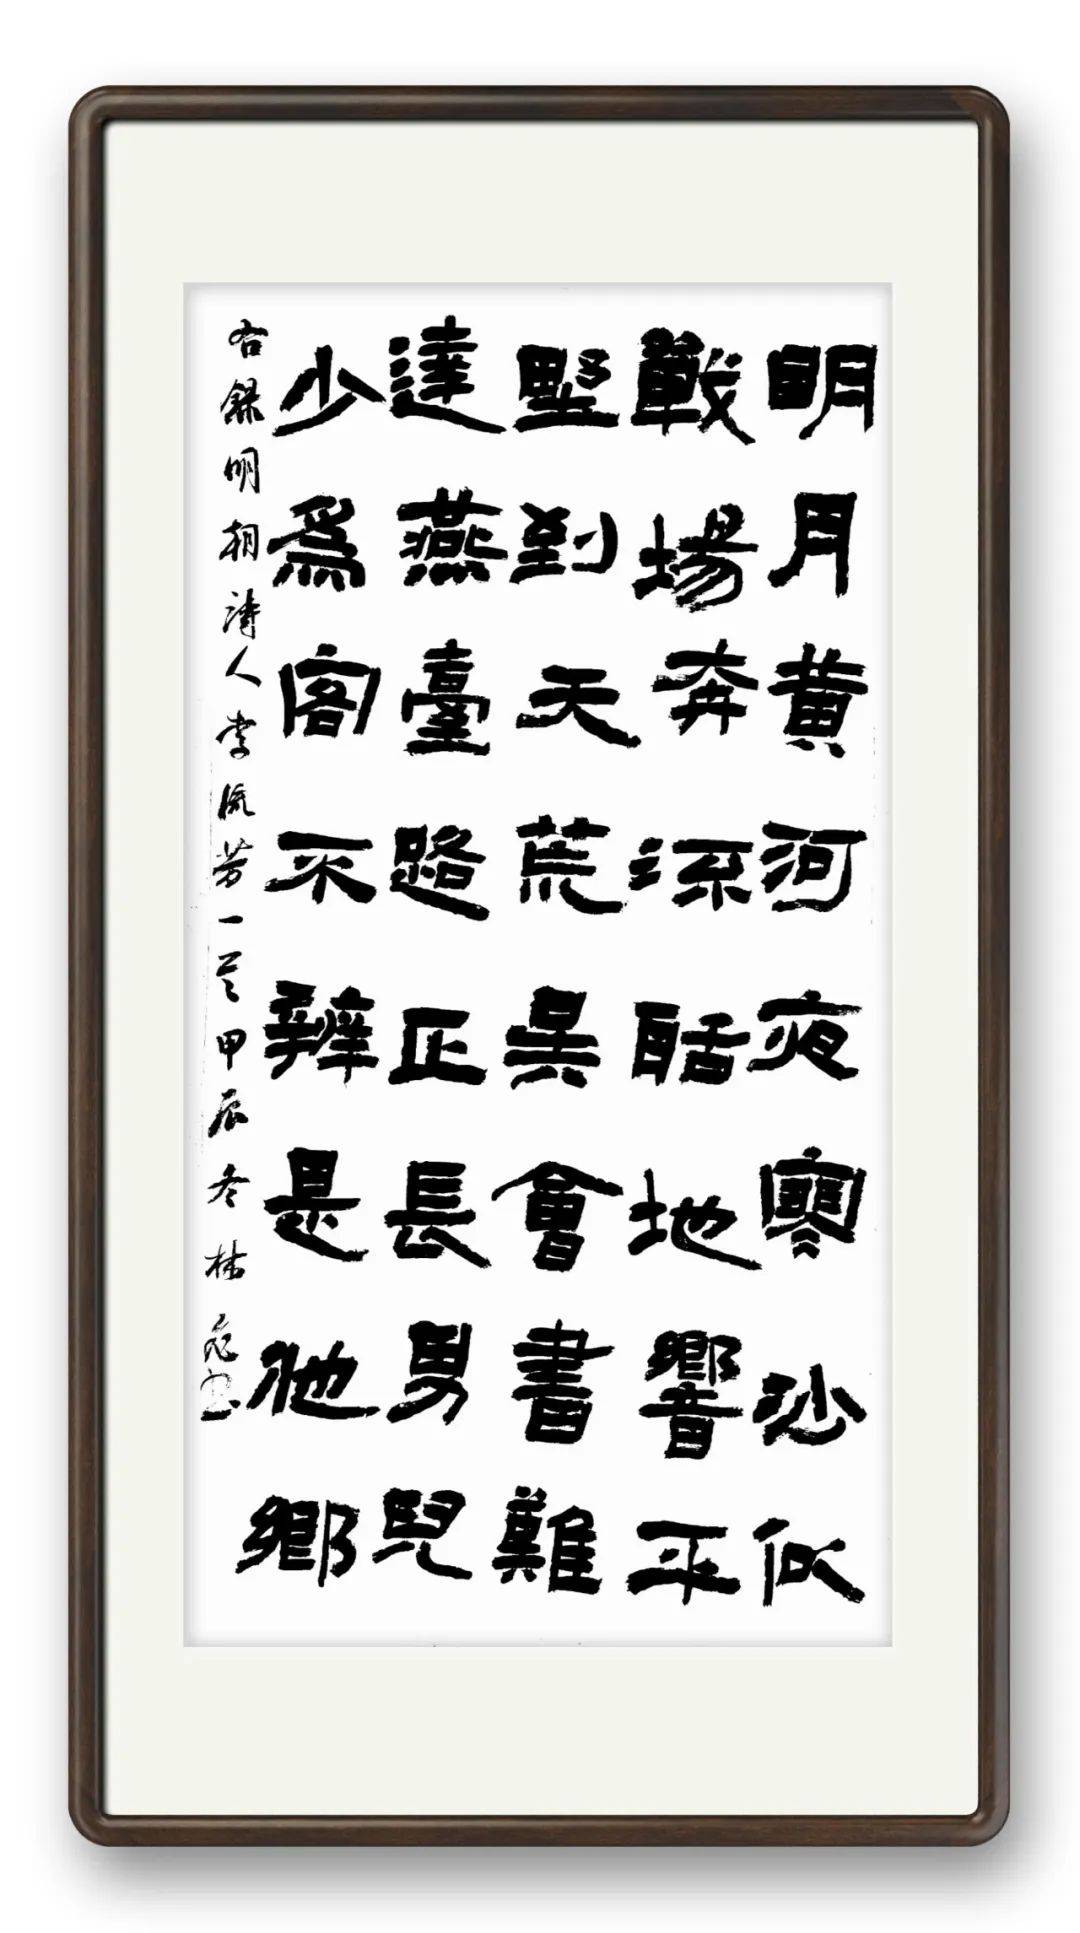 明月黃河夜寒沙似
戰場奔流聒地響平
墅到天荒吳會書難
達燕臺路正長男兒
少爲客不辨是他鄉
右錄明朝詩人李流芳一首甲辰冬林書